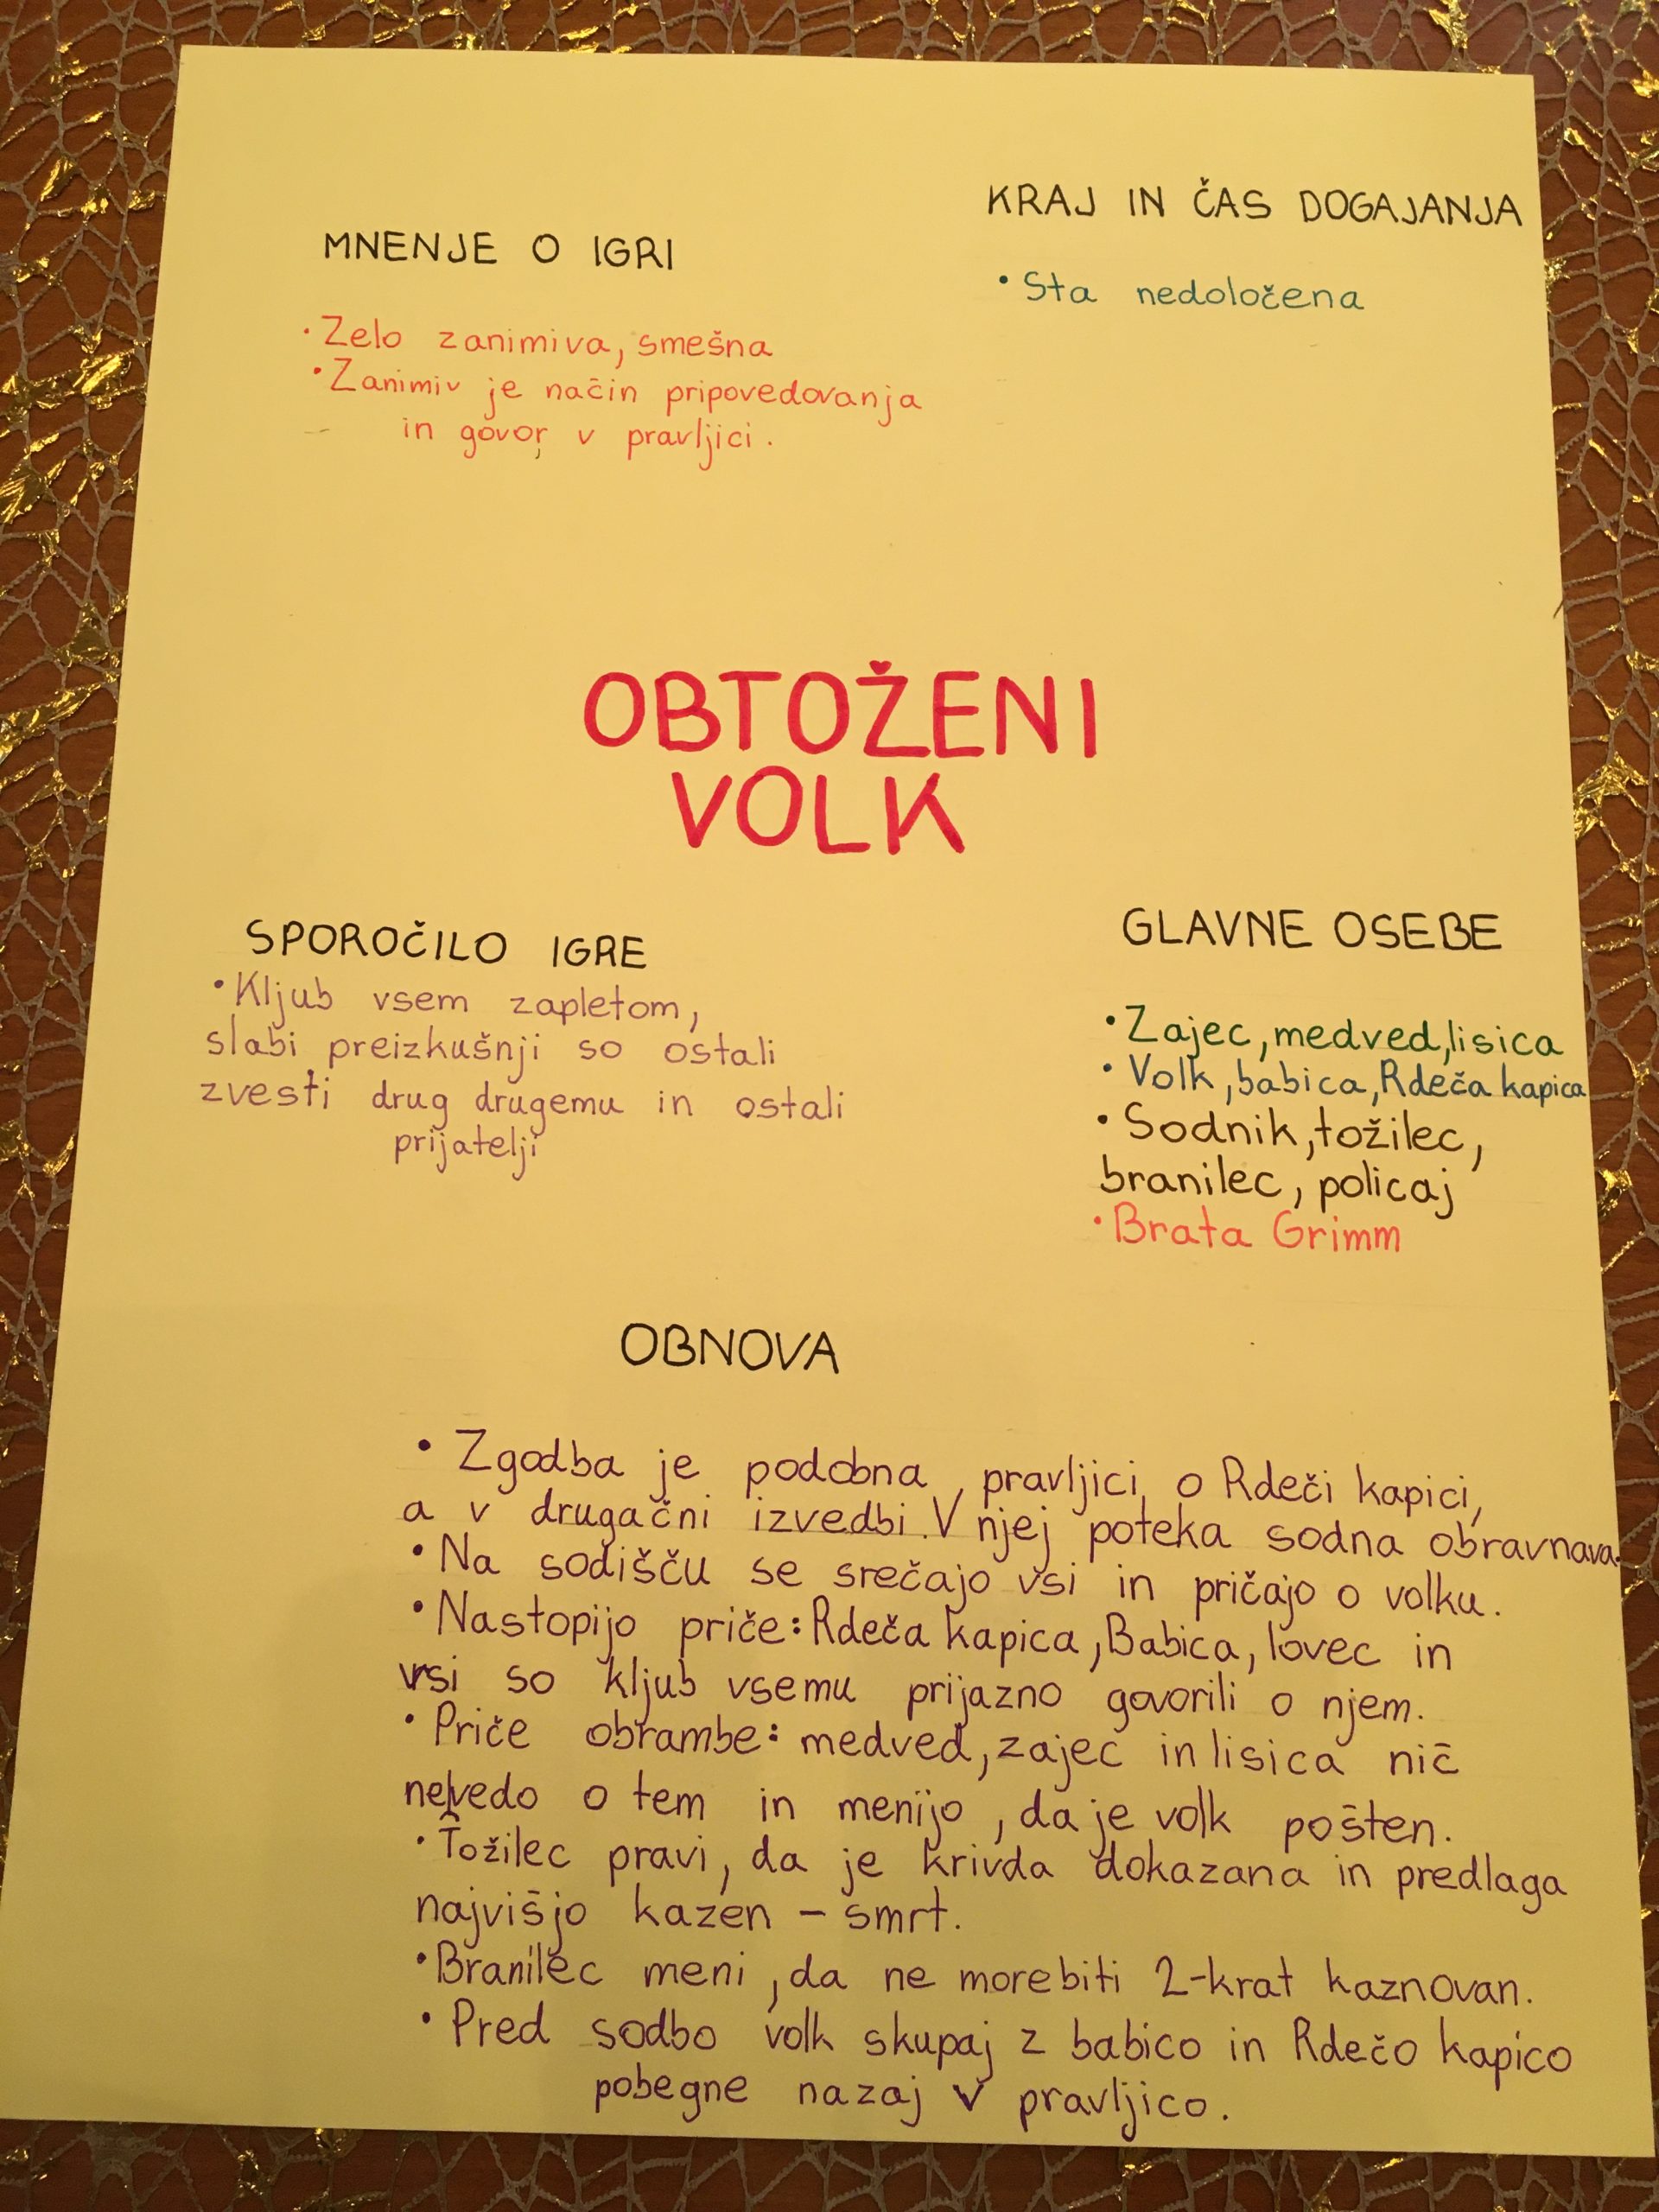 MNENJE O IGRI
• Zelo zanimiva, smešna
• Zanimiv je način pripovedovanja
in govor v pravljici.
KRAJ IN ČAS DOGAJANJA
• Sta nedoločena
OBTOŽENI
VOLK
SPOROČILO IGRE
• Kljub vsem zapletom,
slabi preizkušnji so ostali
zvesti drug drugemu in ostali
prijatelji
GLAVNE OSEBE
• Zajec, medved, lisica
• Volk, babica, Rdeča kapica
• Sodnik, tožilec,
branilec, policaj
• Brata Grimm
OBNOVA
• Zgodba je podobna pravljici o Rdeči kapici,
a v drugačni izvedbi. V njej poteka sodna obravnava.
• Na sodišču se srečajo vsi in pričajo o volku.
• Nastopijo priče: Rdeča kapica, Babica, lovec in
vsi so kljub vsemu prijazno govorili o njem.
• Priče obrambe: medved, zajec in lisica nič
ne vedo o tem in menijo, da je volk pošten.
• Tožilec pravi, da je krivda dokazana in predlaga
najvišjo kazen - smrt.
• Branilec meni, da ne more biti 2-krat kaznovan.
• Pred sodbo volk skupaj z babico in Rdečo kapico
pobegne nazaj v pravljico.